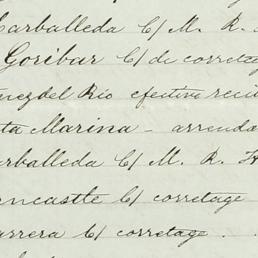 Carballeda C/ M. R.
Goribar C/ de corretag
nez del Rio efectivo recib
ta Marina - arrenda
arballeda C/ M. R. H
ncastle C/ corretage
arrera C/ corretage .